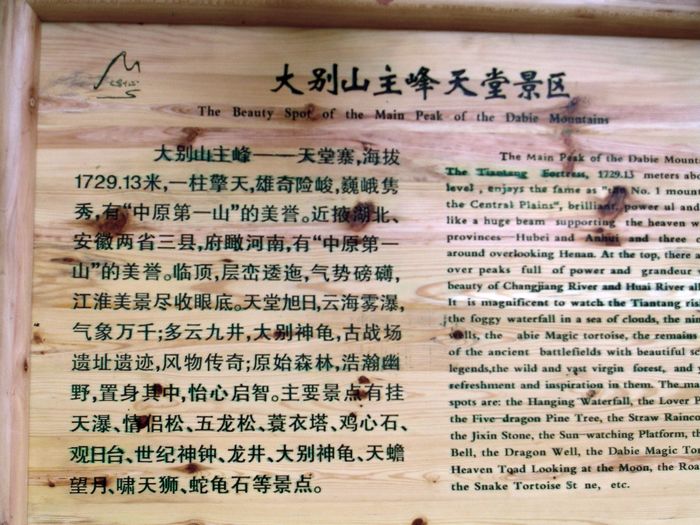 大别山主峰天堂景区
The Beauty Spot of the Main Peak of the Dabie Mountains
大别山主峰——天堂寨,海拔
1729.13米,一柱擎天,雄奇险峻,巍峨隽
秀,有“中原第一山”的美誉。近掖湖北、
安徽两省三县,府瞰河南,有“中原第一
山”的美誉。临顶,层峦逶迤,气势磅礴,
江淮美景尽收眼底。天堂旭日,云海雾瀑,
气象万千;多云九井,大别神龟,古战场
遗址遗迹,风物传奇;原始森林,浩瀚幽
野,置身其中,怡心启智。主要景点有挂
天瀑、情侣松、五龙松、蓑衣塔、鸡心石、
观日台、世纪神钟、龙井、大别神龟、天蟾
望月、啸天狮、蛇龟石等景点。
The Main Peak of the Dabie
The Tiantang Fortress, 1729.13 meters
level , enjoys the fame as "the No. 1
the Central Plains", brilliant, power ul and
like a huge beam supporting the heaven
provinces Hubei and Anhui and three
around overlooking Henan. At the top, there
over peaks full of power and grandeur
beauty of Changjiang River and Huai River
It is magnificent to watch the Tiantang
the foggy waterfall in a sea of clouds, the
abie Magic tortoise, the remains
of the ancient battlefields with beautiful
legends,the wild and vast virgin forest, and
refreshment and inspiration in them. The
spots are: the Hanging Waterfall, the Lover
the Five-dragon Pine Tree, the Straw
the Jixin Stone, the Sun-watching Platform,
Bell, the Dragon Well, the Dabie Magic
Heaven Toad Looking at the Moon, the
the Snake Tortoise St ne, etc.